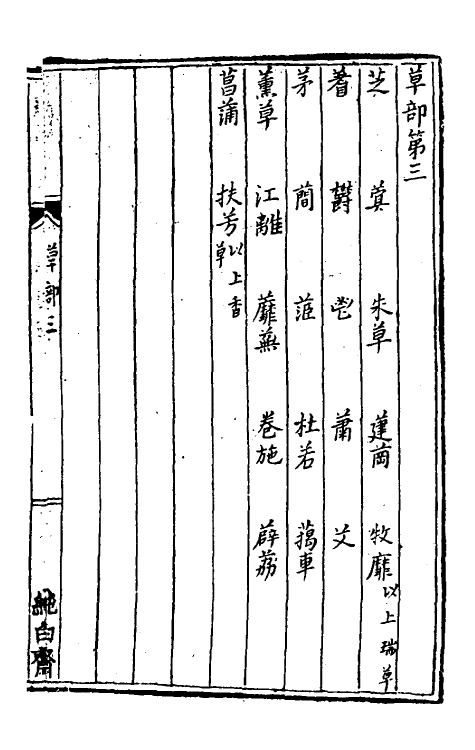 草部第三
芝 蓂 朱草 萐莆 牧靡以上瑞草
蓍 鬱 鬯 蕭 艾
茅 蕳 茝 杜若 藒車
薰草 江離 蘼蕪 卷施 薜荔
菖蒲 扶芳以上香草
草部三
純白齋